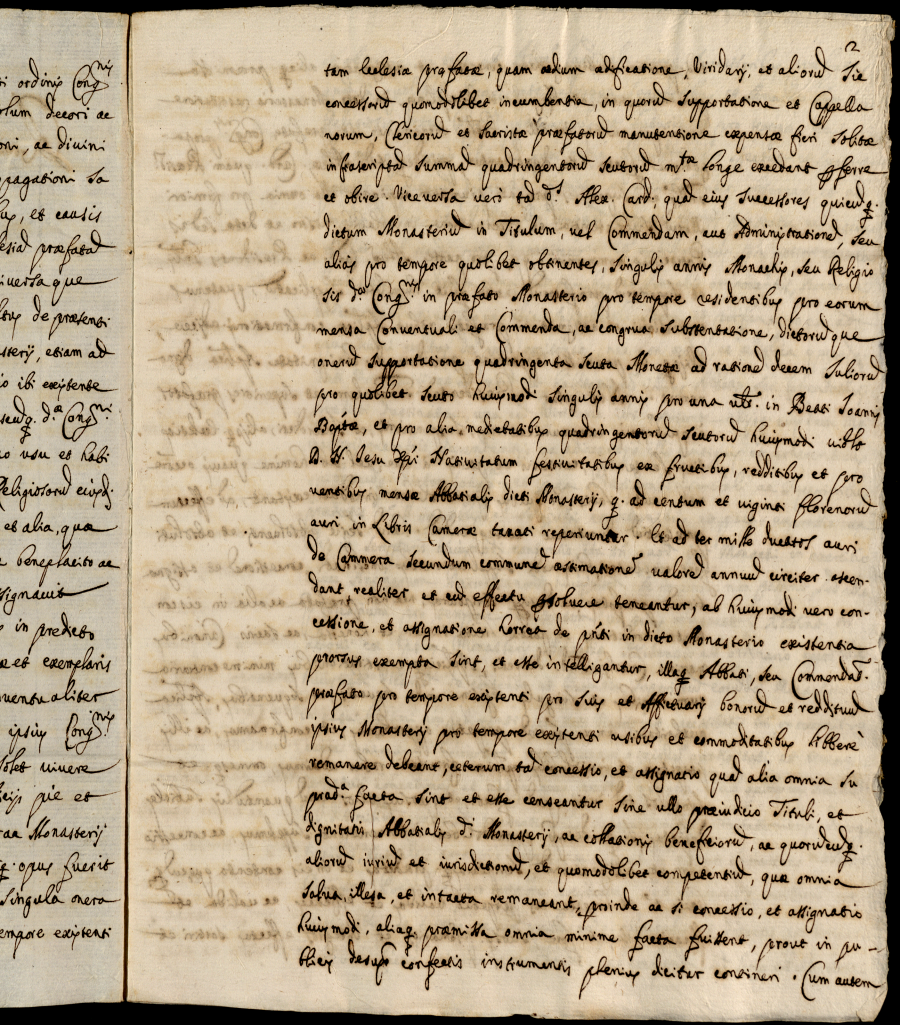 ri ordinis Cong.nis
olum decori ac
oni, ac divini
opagationi sa
bus, et causis
lesiæ præfatæ
iversa que
ltus de præsenti
sterij, etiam ad
io ibi existente
seu q. d.æ Cong.nis
no usu et habi
Religiosorũ eiusd.
et alia, quæ
beneplacito ac
signavit
in predicto
æ et exemplaris
nventualiter
ipsius Cong.nis
solet vivere
ficijs pie et
Monasterij
q. opus fuerit
singula onera
tempore existenti
2
tam Ecclesiæ præfatæ, quam ædium ædificatione, Viridarij, et aliorũ sic
concessorũ quomodolibet incumbentia, in quorũ supportatione et Cappella
norum, Clericorũ et Sacristæ præfatorũ manutentione expensæ fieri solitæ
infrascriptã summã quadringentorũ scutorũ m.tæ longe excedant pferre
et obire. Viceversa verò tã d.s Alex. Card., quã eius successores quicũq.
dictum Monasteriũ in Titulum, vel Commendam, aut Administrationẽ, seu
aliàs pro tempore quolibet obtinentes, singulis annis Monachis, seu Religio
sis d.æ Cong.nis in præfato Monasterio pro tempore residentibus pro eorum
mensa Conventuali et Commenda, ac congrua substentatione, dictorũque
onerũ supportatione quadringenta scuta Monetæ ad rationẽ decem Juliorũ
pro quolibet scuto huiusmodi singulis annis pro una vlt. in Beati Joannis
Baptæ, et pro alia medietatibus quadringentorũ scutorũ huiusmodi
D. N. Jesu Xpi Nativitatum festivitatibus ex fructibus, redditibus et pro
ventibus mensæ Abbatialis dicti Monasterij, q. ad centum et viginti florenorũ
auri in Libris Cameræ taxati reperiuntur. Et ad ter mille ducatos auri
de Cammera secundum communẽ æstimationẽ valorẽ annuũ circiter ascen-
dant, realiter et cũ effectu psolvere teneantur, ab huiusmodi vero con-
cessione, et assignatione horrea de pñti in dicto Monasterio existentia
prorsus exempta sint, et esse intelligantur, illaq. Abbati, seu Commendat.
præfato pro tempore existenti pro suis et Affictuarij bonorũ et reddituũ
ipsius Monasterij pro tempore existenti usibus et commoditatibus liberè
remanere debeant, ceterum tã concessio, et assignatio quã alia omnia su
prad.a facta sint et esse censeantur sine ullo præiudicio Tituli, et
dignitatis Abbatialis d. Monasterij, ac collationis beneficiorũ, ac quorũcũq.
aliorũ iuriũ et iurisdictionũ, et quomodolibet competentiũ, quæ omnia
salva, illesa, et intacta remaneant, proinde ac si concessio, et assignatio
huiusmodi, aliaq. præmissa omnia minime facta fuissent, prout in pu-
blicis desup. confectis instrumentis plenius dicitur contineri. Cum autem